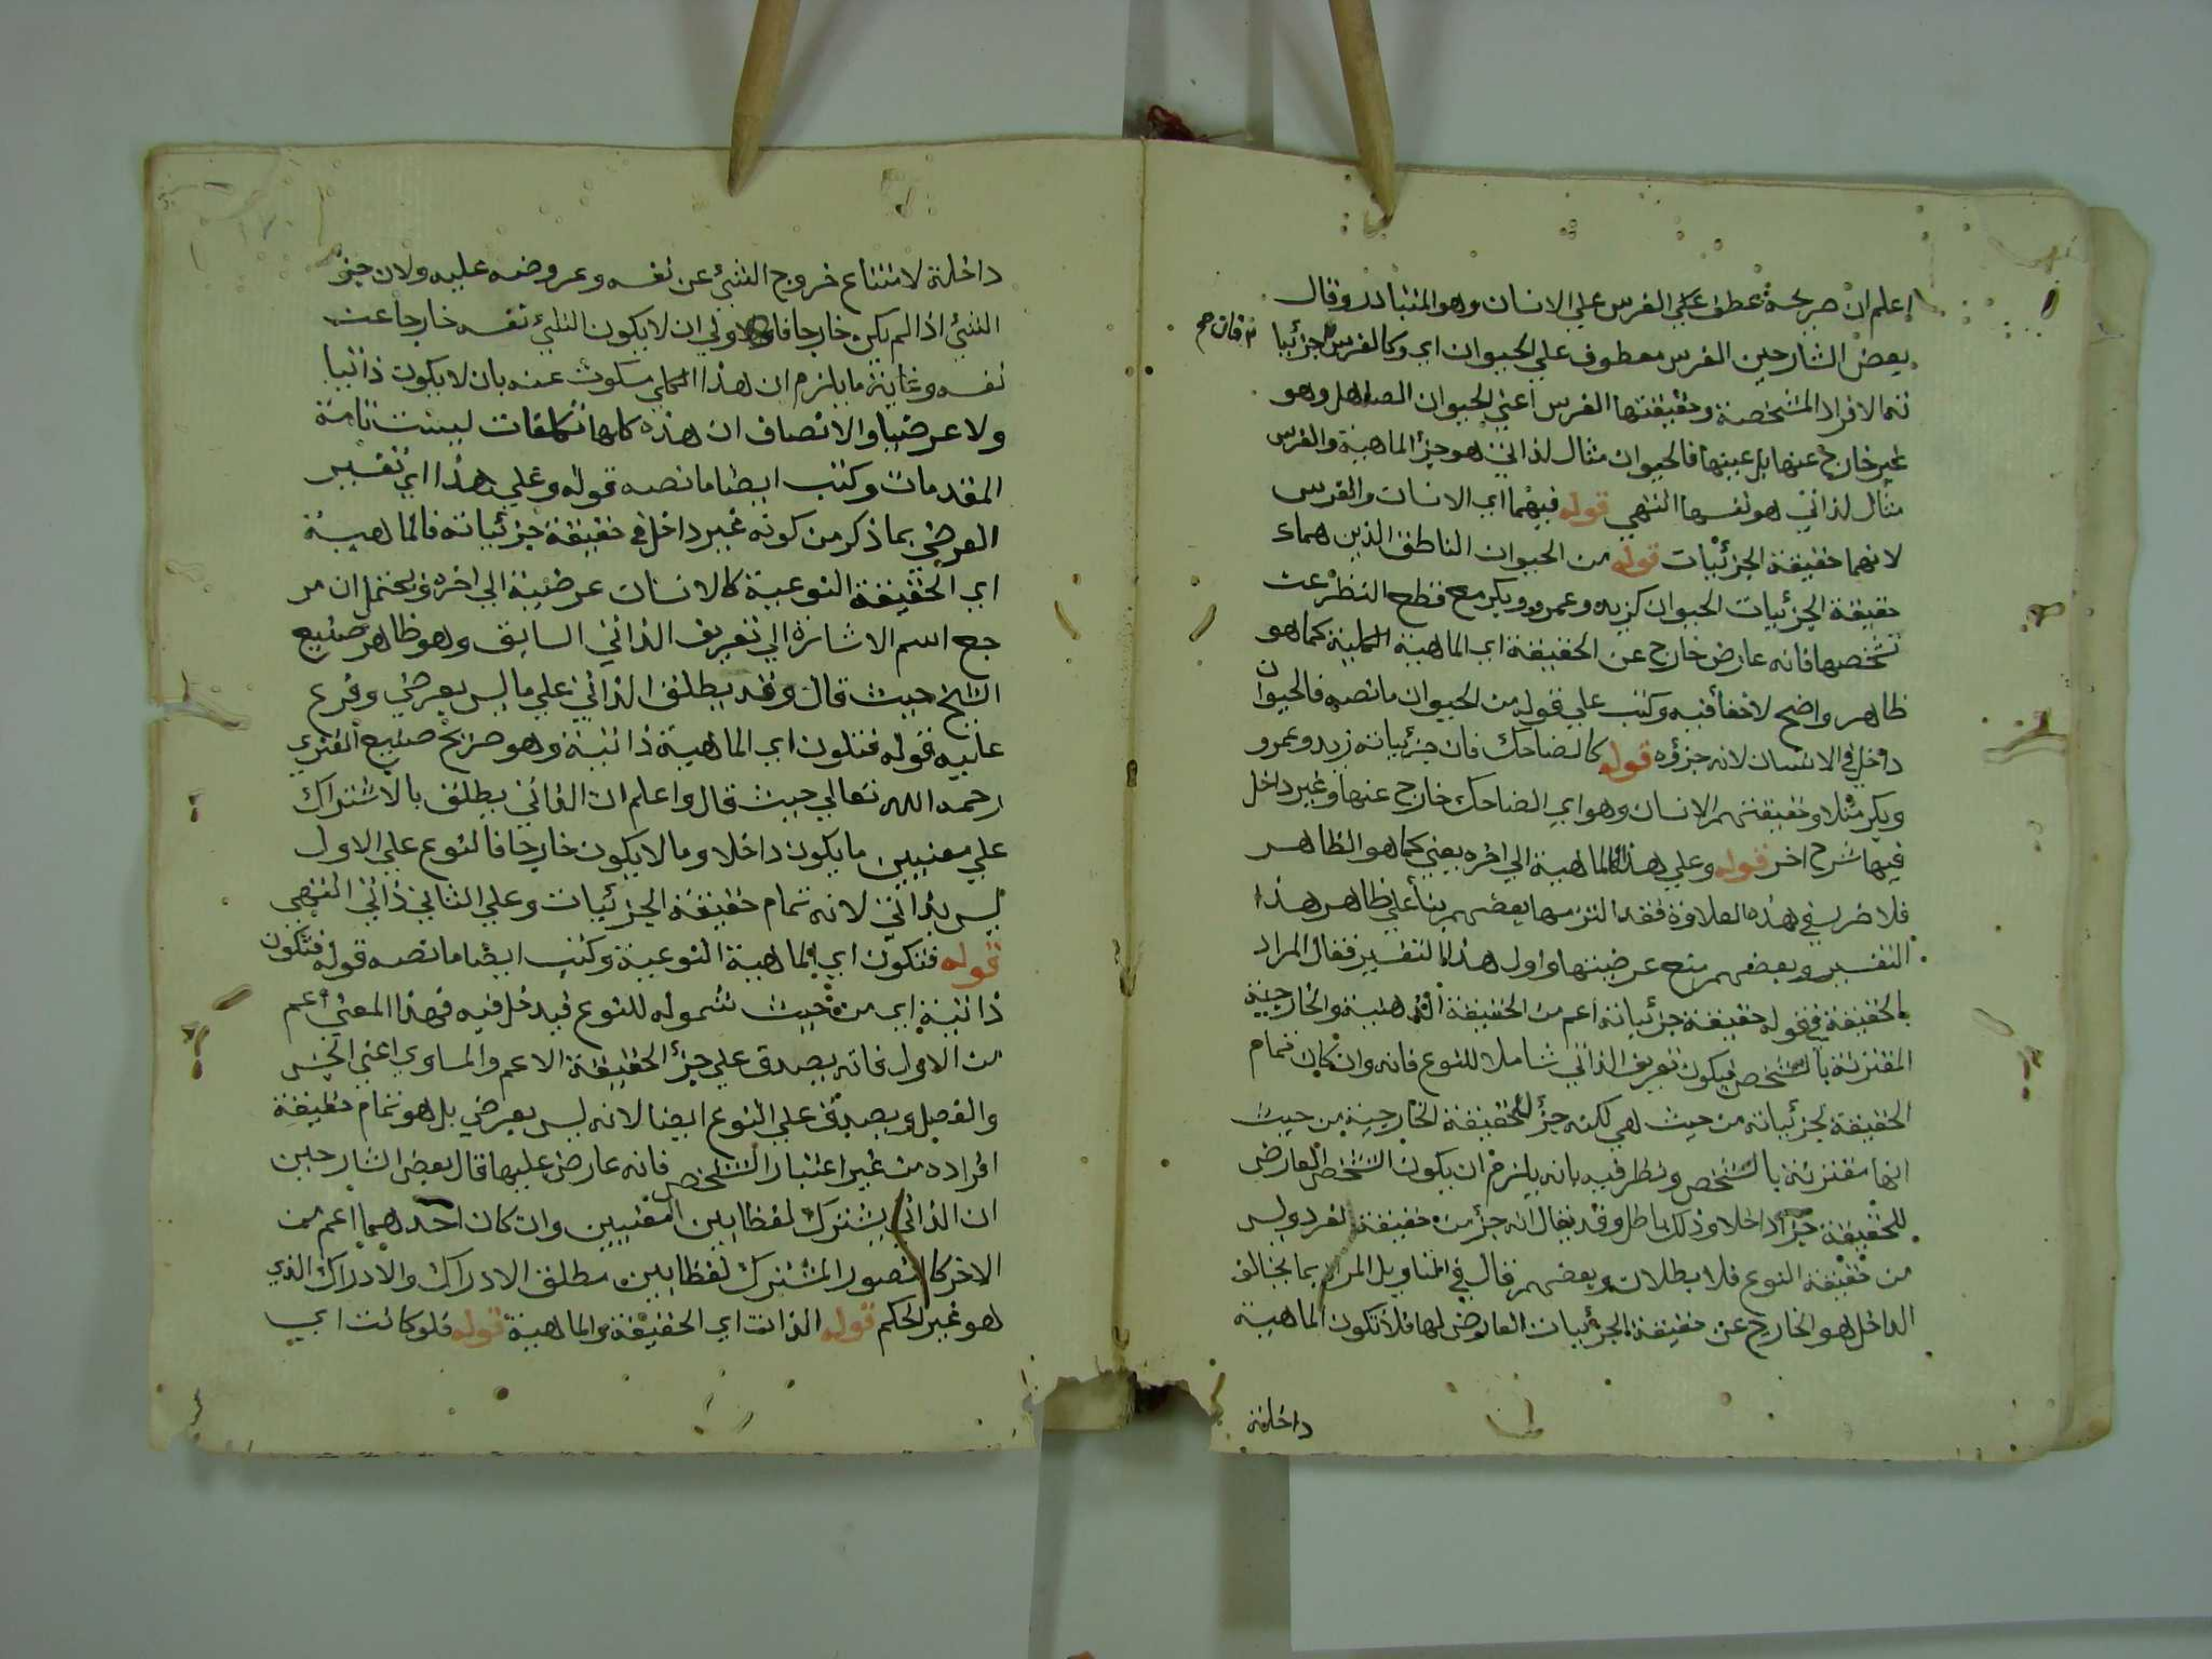 اعلم ان صريحة عطف علي الفرس علي الانسان وهو المتبادر وقال
بعض الشارحين الفرس معطوف علي الحيوان اي وكالفرس جزئيا
فان صح
تها الافراد المشخصة وحقيقتها الفرس اعني الحيوان الصاهل وهو
غير خارج عنها بل عينها فالحيوان مثال لذاتي هو جزؤ الماهية والفرس
مثال لذاتي هو نفسها انتهي قوله فيهما اي الانسان والفرس
لانهما حقيقة الجزئيات قوله من الحيوان الناطق الذين هما
حقيقة الجزئيات الحيوان كزيد وعمرو وبكر مع قطع النظر عن
تشخصها فانه عارض خارج عن الحقيقة اي الماهية الكلية كما هو
ظاهر واضح لا خفأ فيه وكتب علي قوله من الحيوان ما نصه فالحيوان
داخل في الانسان لانه جزؤه قوله كالضاحك فان جزئياته زيد وعمرو
وبكر مثلا وحقيقتهم الانسان وهو اي الضاحك خارج عنها وغير داخل
فيها شرح اخر قوله وعلي هذا فالماهية الي اخره يعني كما هو الظاهر
فلا ضرر في هذه العلاوة فقد التزمها بعضهم بنأ علي ظاهر هذا
التفسير وبعضهم منع عرضيتها واول هذا التفسير فقال المراد
بالحقيقة في قوله حقيقة جزئياته اعم من الحقيقة الذهنية والخارجية
المقترنة بالتشخص فيكون تعريف الذاتي شاملا للنوع فانه وان كان تمام
الحقيقة لجزئياته من حيث هي لكنه جزؤ للحقيقة الخارجية من حيث
انها مقترنة بالتشخص ونظر فيه بانه يلزم ان يكون التشخص العارض
للحقيقة جزأ داخلا وذلك باطل وقد يقال انه جزؤ من حقيقة الفرد وليس
من حقيقة النوع فلا بطلان وبعضهم قال في التاويل المراد بما يخالف
الداخل هو الخارج عن حقيقة الجزئيات العارض لها فلا تكون الماهية
داخلة
داخلة لامتناع خروج الشئ عن نفسه وعروضه عليه ولان جزؤ
الشئ اذا لم يكن خارجا فالاولي ان لا يكون الشئ نفسه خارجا عن
نفسه وغاية ما يلزم ان هذا الكلي سكوت عنه بان لا يكون ذاتيا
ولا عرضيا والانصاف ان هذه كلها تكلفات ليست تامة
المقدمات وكتب ايضا ما نصه قوله وعلي هذا اي تفسير
العرضي بما ذكر من كونه غير داخل في حقيقة جزئياته فالماهية
اي الحقيقة النوعية كالانسان عرضية الي اخره ويحتمل ان مر
جع اسم الاشارة الي تعريف الذاتي السابق وهو ظاهر صنيع
الشيخ حيث قال وقد يطلق الذاتي علي ما ليس بعرضي وفرع
عليه قوله فتكون اي الماهية ذاتية وهو صريح صنيع الفنري
رحمه الله تعالي حيث قال واعلم ان الذاتي يطلق بالاشتراك
علي معنيين ما يكون داخلا وما لا يكون خارجا فالنوع علي الاول
ليس بذاتي لانه تمام حقيقة الجزئيات وعلي الثاني ذاتي انتهي
قوله فتكون اي الماهية النوعية وكتب ايضا ما نصه قوله فتكون
ذاتية اي من حيث شموله للنوع فيدخل فيه فهذا المعني اعم
من الاول فانه يصدق علي جزؤ الحقيقة الاعم والمساوي اعني الجنس
والفصل ويصدق علي النوع ايضا لانه ليس بعرضي بل هو تمام حقيقة
افراده من غير اعتبار التشخص فانه عارض عليها قال بعض الشارحين
ان الذاتي يشترك لفظا بين المعنيين وان كان احدهما اعم من
الاخر كالتصور المشترك لفظا بين مطلق الادراك والادراك الذي
هو غير الحكم قوله الذات اي الحقيقة والماهية قوله فلو كانت اي